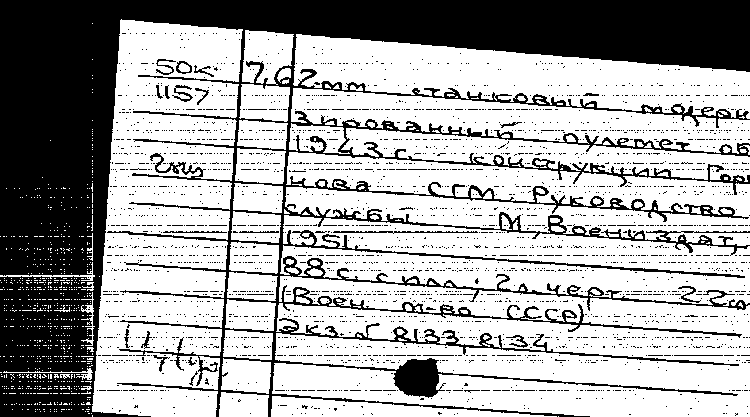 50к 7,62-мм станковый модерни
1157
зированный пулемет об
1943 г. конструкции Горю
нова СГМ. Руководство
службы М., Воениздат,
1951.
88 с. с илл.; 2 л. черт. 22 см
(Воен. м-во СССР)
Экз. № 8133, 8134